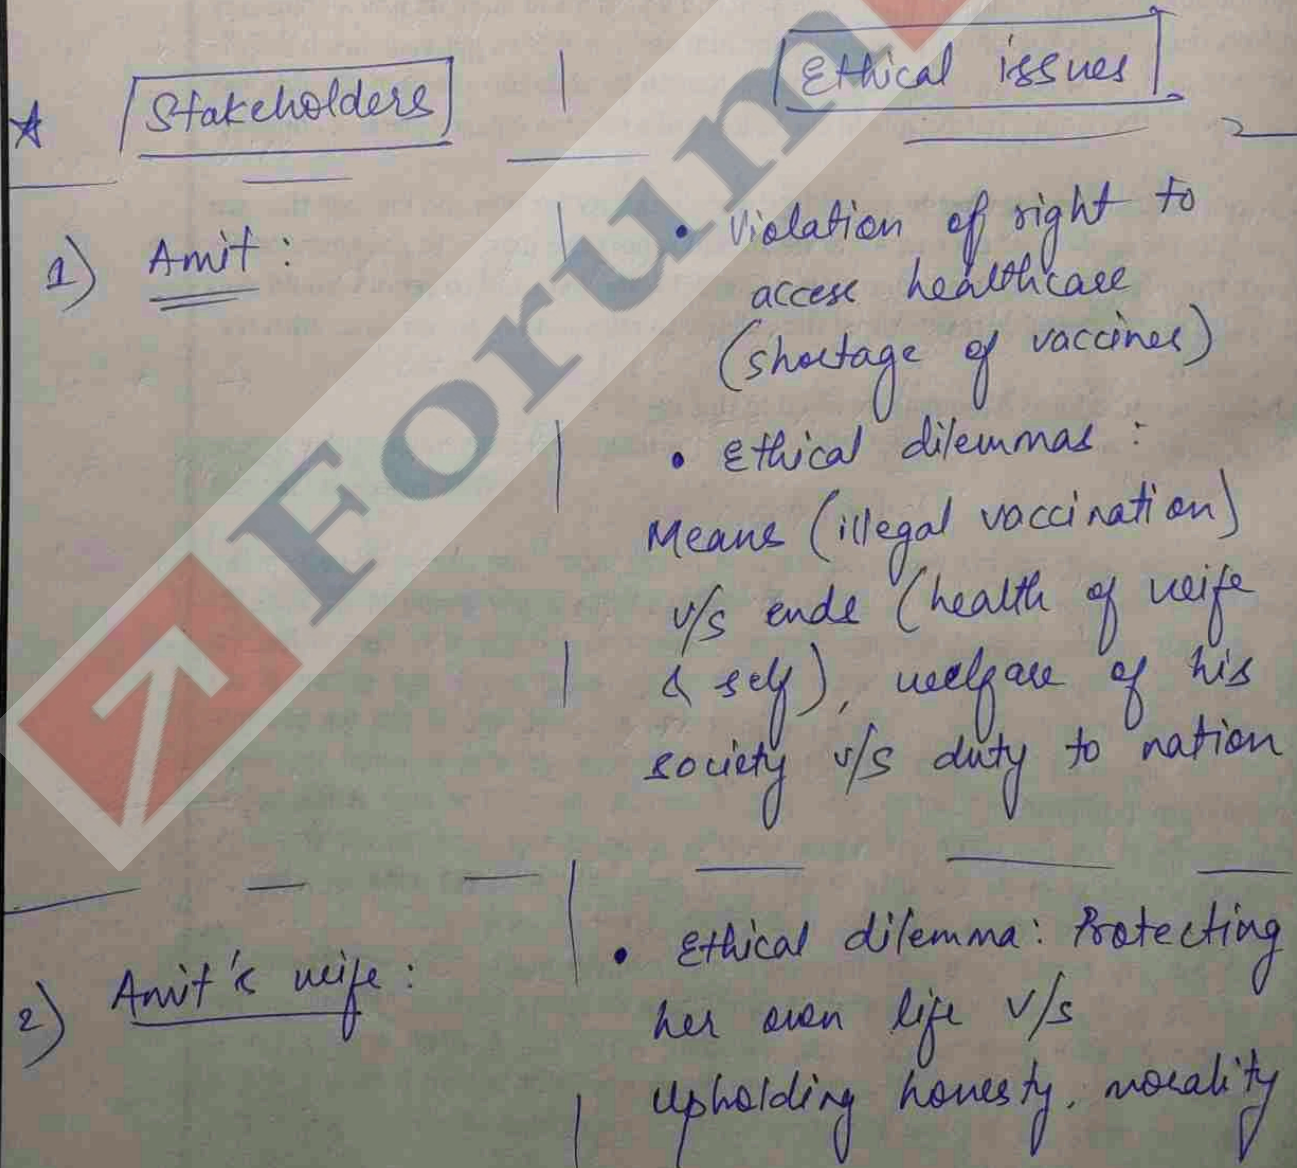 Stakeholders | Ethical issues
1) Amit : | • Violation of right to
access healthcare
(shortage of vaccines)
• Ethical dilemmas :
Means (illegal vaccination)
v/s ends (health of wife
& self), welfare of his
society v/s duty to nation
2) Amit's wife : | • Ethical dilemma: Protecting
her own life v/s
upholding honesty, morality
Forum